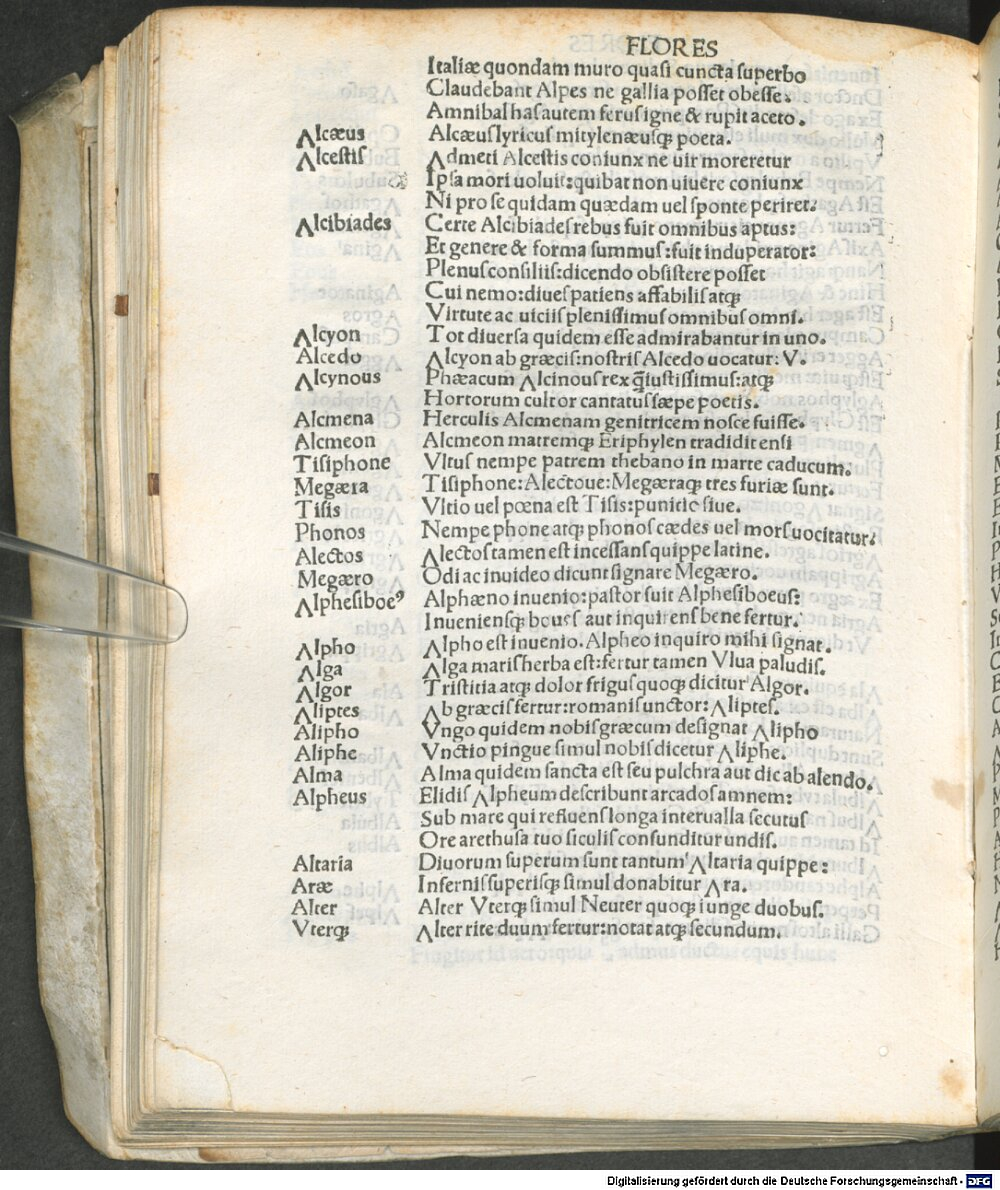 FLORES
Italiæ quondam muro quasi cuncta superbo
Claudebant Alpes ne gallia posset obesse.
Amnibal has autem ferus igne & rupit aceto.
Alcæus Alcæus lyricus mitylenæusqꝫ poeta.
Alcestis Admeti Alcestis coniunx ne uir moreretur
Ipsa mori uoluit: quibat non uiuere coniunx
Ni pro se quidam quædam uel sponte periret.
Alcibiades Certe Alcibiades rebus fuit omnibus aptus:
Et genere & forma summus: fuit induperator:
Plenus consiliis: dicendo obsistere posset
Cui nemo: diues patiens affabilis atqꝫ
Virtute ac uiciis plenissimus omnibus omni.
Alcyon Tot diuersa quidem esse admirabantur in uno.
Alcedo Alcyon ab græcis: nostris Alcedo uocatur: V.
Alcynous Phæacum Alcinous rex q̃ iustissimus: atqꝫ
Hortorum cultor cantatus sæpe poetis.
Alcmena Herculis Alcmenam genitricem nosce fuisse.
Alcmeon Alcmeon matremqꝫ Eriphylen tradidit ensi
Tisiphone Vltus nempe patrem thebano in marte caducum.
Megæra Tisiphone: Alectoue: Megæraqꝫ tres furiæ sunt.
Tisis Vltio uel pœna est Tisis: punitio siue.
Phonos Nempe phone atqꝫ phonos cædes uel mors uocitatur.
Alectos Alectos tamen est incessans quippe latine.
Megæro Odi ac inuideo dicunt signare Megæro.
Alphesiboeꝰ Alphæno inuenio: pastor fuit Alphesiboeus:
Inueniensqꝫ boues aut inquirens bene fertur.
Alpho Alpho est inuenio. Alpheo inquiro mihi signat.
Alga Alga maris herba est: fertur tamen Vlua paludis.
Algor Tristitia atqꝫ dolor frigus quoqꝫ dicitur Algor.
Aliptes Ab græcis fertur: romanis unctor: Aliptes.
Alipho Vngo quidem nobis græcum designat Alipho
Aliphe Vnctio pingue simul nobis dicetur Aliphe.
Alma Alma quidem sancta est seu pulchra aut dic ab alendo.
Alpheus Elidis Alpheum describunt arcados amnem:
Sub mare qui refluens longa interualla secutus
Ore arethusa tuo siculis confunditur undis.
Altaria Diuorum superum sunt tantum Altaria quippe:
Aræ Infernis superisqꝫ simul donabitur Ara.
Alter Alter Vterqꝫ simul Neuter quoqꝫ iunge duobus.
Vterqꝫ Alter rite duum fertur: notat atqꝫ secundum.
Digitalisierung gefördert durch die Deutsche Forschungsgemeinschaft - DFG